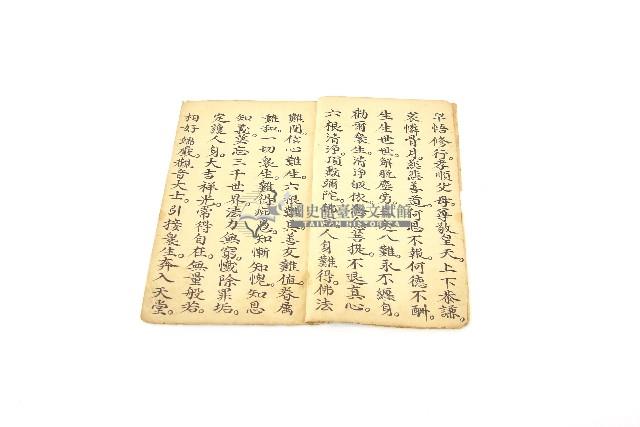 早悟修行。孝順父母。尊敬皇天。上下恭謙。
哀憐骨月。慈悲善道。何恩不報。何德不酧。
生生世世。解脫塵勞。八難永不纏身。
勸爾衆生。清淨皈依。菩提不退真心。
六根清淨。頂戴彌陀佛。人身難得。佛法
難聞。信心難生。六根難具。善友難值。眷属
難和。一切衆生。難得。知慚知愧。知恩
知義。莫忘三千世界。法力無窮。懺除罪垢。
定護人身。大吉祥光。常得自在。無量般若。
相好端嚴。觀音大士。引接衆生。奔入天堂。
國史館臺灣文獻館
TAIWAN HISTORICA